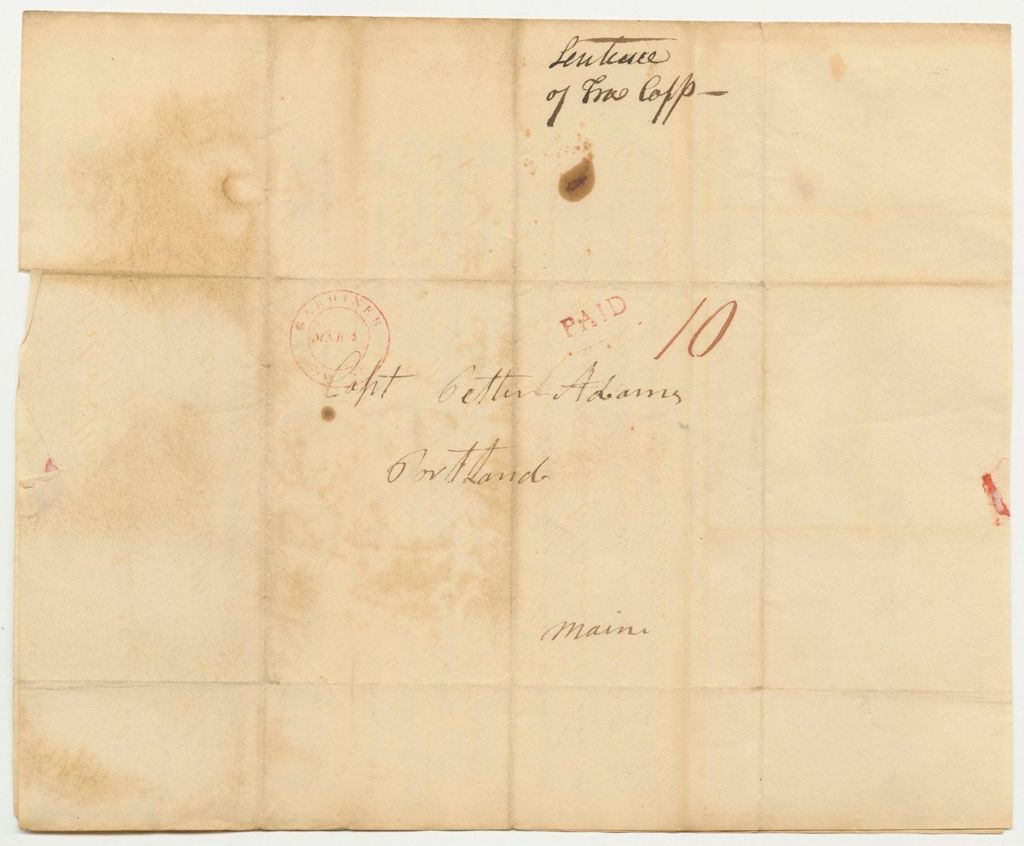 Sentence
of True Copp—
GARDINER
MAR 5
PAID
10
Capt Petten Adams
Portland
Maine